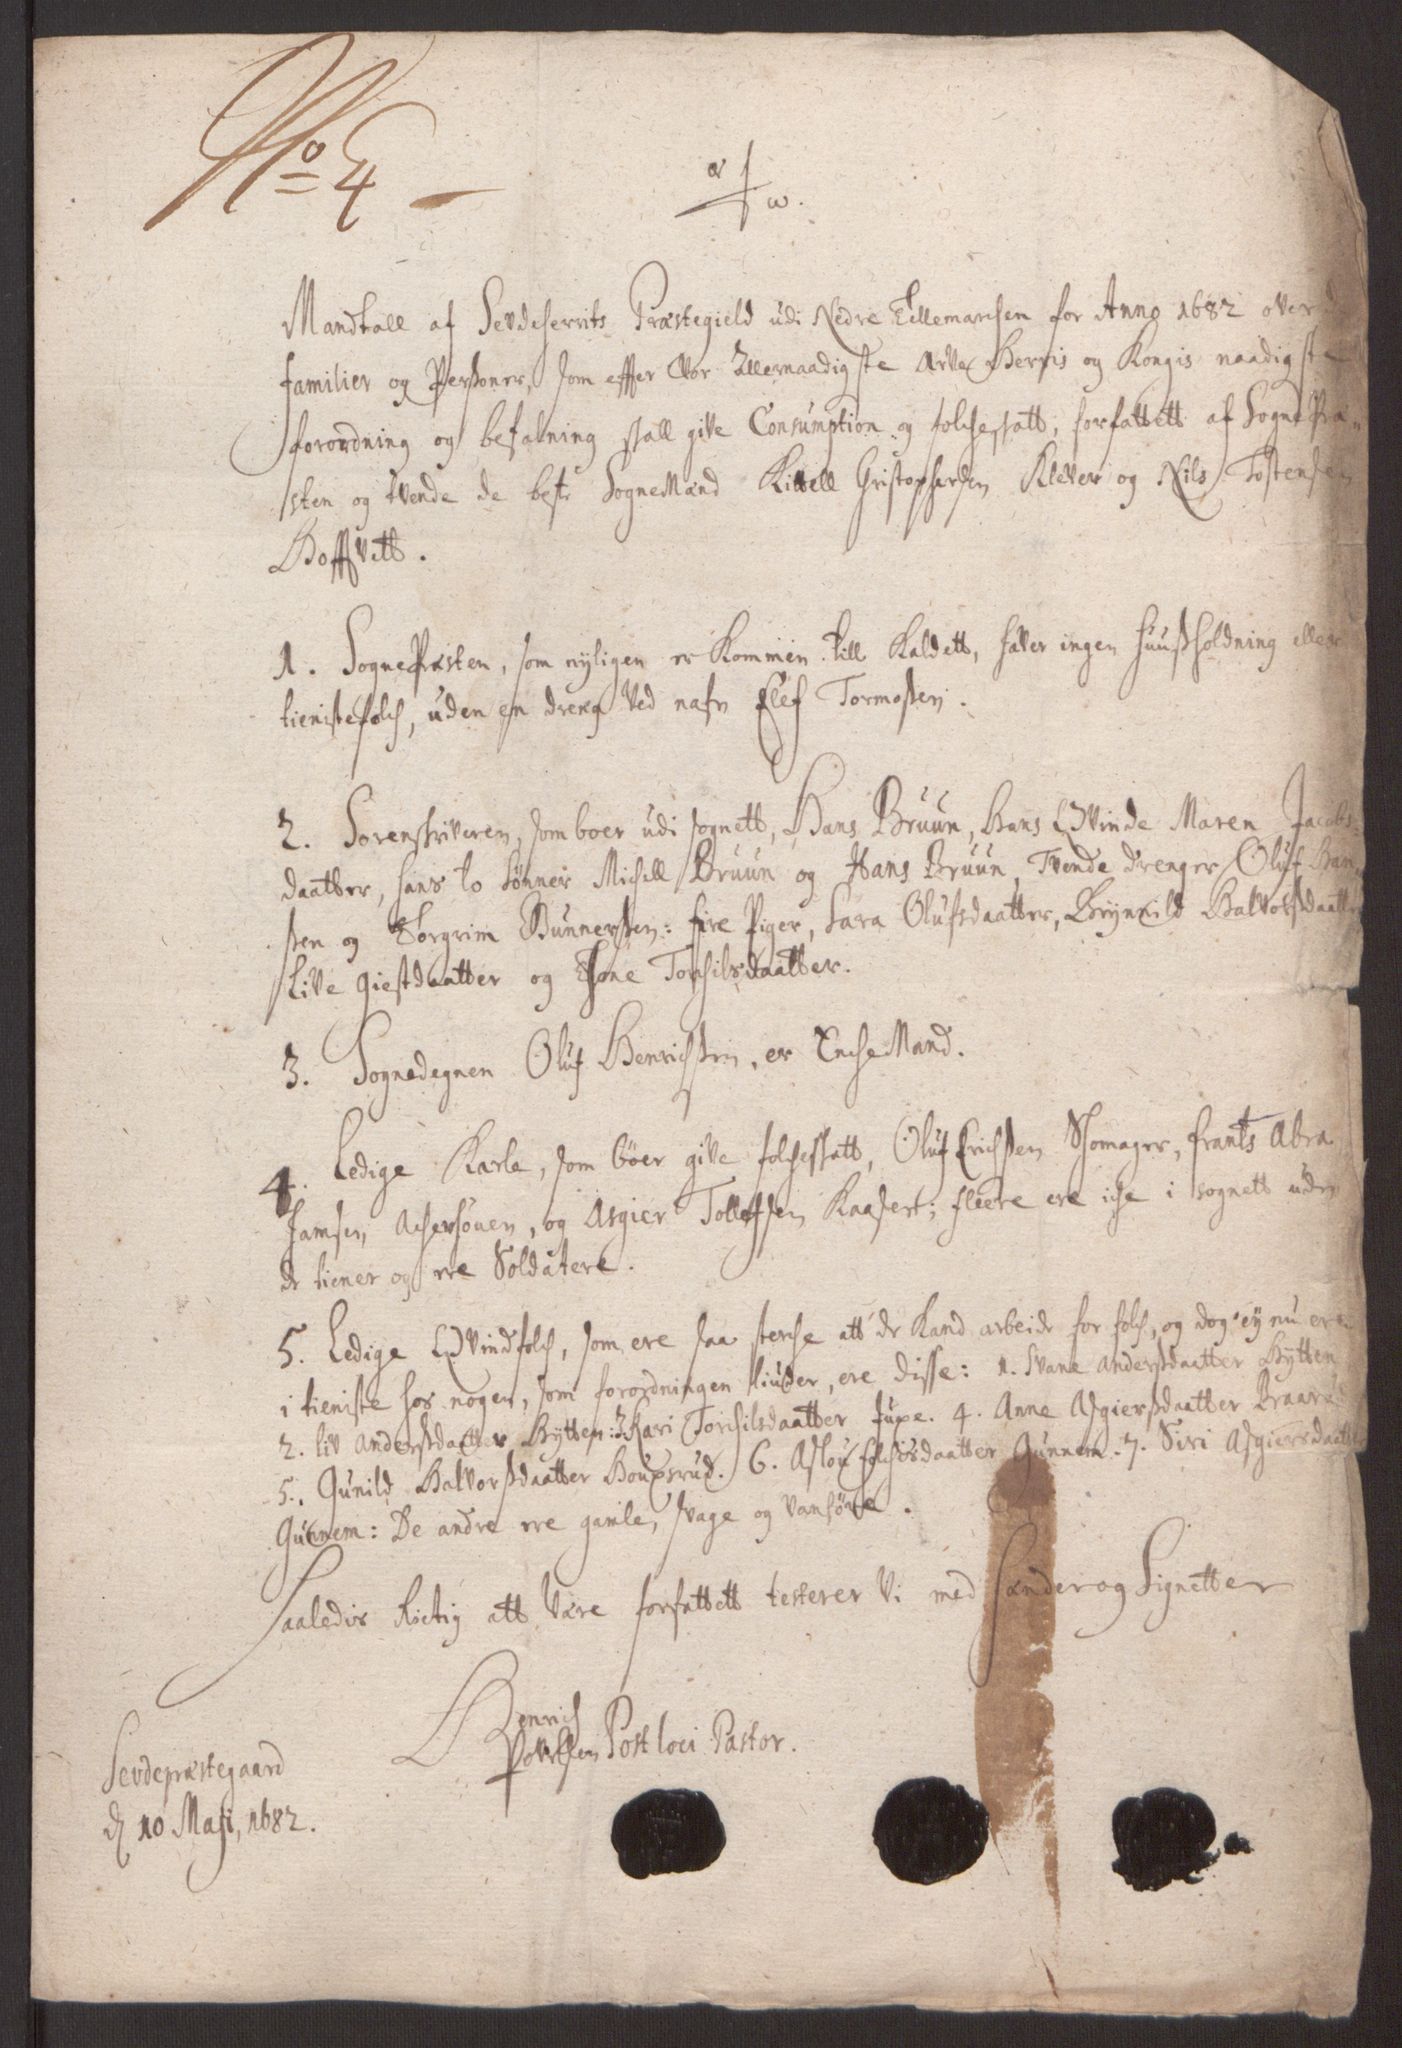 No 4
α ω.
Mandtall af Sevdeherrits Præstegield udi Nedre Tellemarchen for Anno 1682 over
familier og Personer, som effter Vor Allernaadigste Arve Herris og Kongis naadigste
forordning og befalning skall give Consumption og folcheskatt, forfattett af SognePræ-
sten og tvende de beste SogneMænd Kittell Christophersen Klever og Nils Tostensen
Hoffvett.
1. SognePræsten, som nyligen er Kommen till Kaldett, haver ingen huusholdning eller
tienistefolch, uden en dreng Ved nafn Elef Tormoßen.
2. Sorenskriveren, som boer udi sognett, Hans Bruun, Hans Qvinde Maren Jacobs-
daatter, hans to Sønner Michell Bruun og Hans Bruun, Tvende drenger Oluf Han-
ßen og Torgrim Gunnerßen: fire Piger, Sara Olufsdaatter, Brynild Halvorßdaatter
Live Giestdaatter og Tone Torchilsdaatter.
3. Sognedegnen Oluf Henrichßen, er EncheMand.
4. Ledige Karle, som bøer give folcheskatt, Oluf Erichßen Skomager, frants Abra
hamsen, Achersøuen, og Asgier Tollefsen Kaasert; fleere ere iche i sognett uden
de tiener og ere Soldatere.
5. Ledige Qvindfolch, som ere saa sterche att de Kand arbeide for folch, og dog ey nu ere
i tieniste hos nogen, som forordningen liuder, ere disse: 1. Svane Anderßdaatter Hytten
2. liv Anderßdaatter Hytten: 3 Kari Torchilsdaatter Jupe. 4. Anne Asgierßdaatter Braarud
5. Gunild Halvorßdaatter Houxrud. 6. Aslou folchisdaatter Gunnem. 7. Siri Asgiersdaatter
Gunnem: De andre ere gamle, svage og vanføre.
Saaledis Rictig att Være forfattett testerer Vi med hænder og Signetter
Henrich
Povelsen Post loci Pastor.
Sevdepræstegaard
d 10 Maji, 1682.